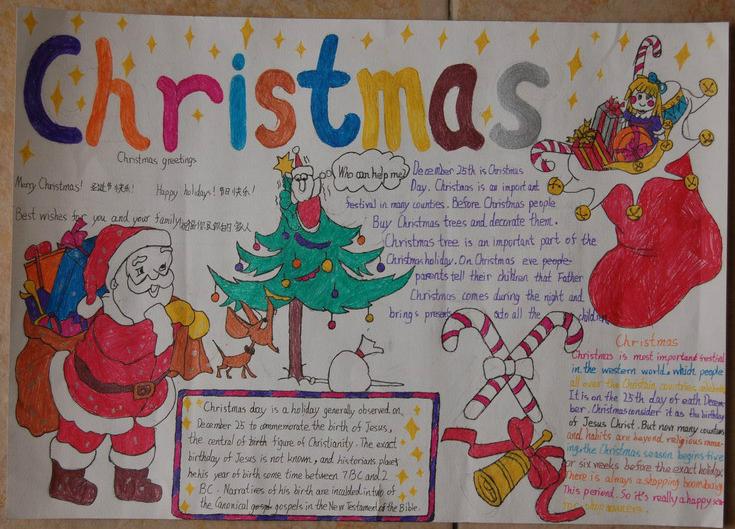 Christmas
Christmas greetings
Merry Christmas! 圣诞节快乐! Happy holidays! 节日快乐!
Best wishes for you and your family
Who can help me?
December 25th is Christmas
Day. Christmas is an important
festival in many countries. Before Christmas people
Buy Christmas trees and decorate them.
Christmas tree is an important part of the
Christmas holiday. On Christmas eve people
parents tell their children that Father
Christmas comes during the night and
brings presents to all the children
Christmas day is a holiday generally observed on
December 25 to commemorate the birth of Jesus,
the central of birth figure of Christianity. The exact
birthday of Jesus is not known, and historians places
he his year of birth some time between 7 BC and 2
BC. Narratives of his birth are included in two of
the Canonical gospels in the New Testament of the Bible.
Christmas
Christmas is most important festival
in the western world. which people
all over the Christain countries celebrate
It is on the 25th day of each Decem
ber. Christmas consider it as the birthday
of Jesus Christ. But now many countries
and habits are beyond religious mea
ning. the Christmas season begins five
or six weeks before the exact holiday.
There is always a shopping boom during
This periend. So it's really a happy